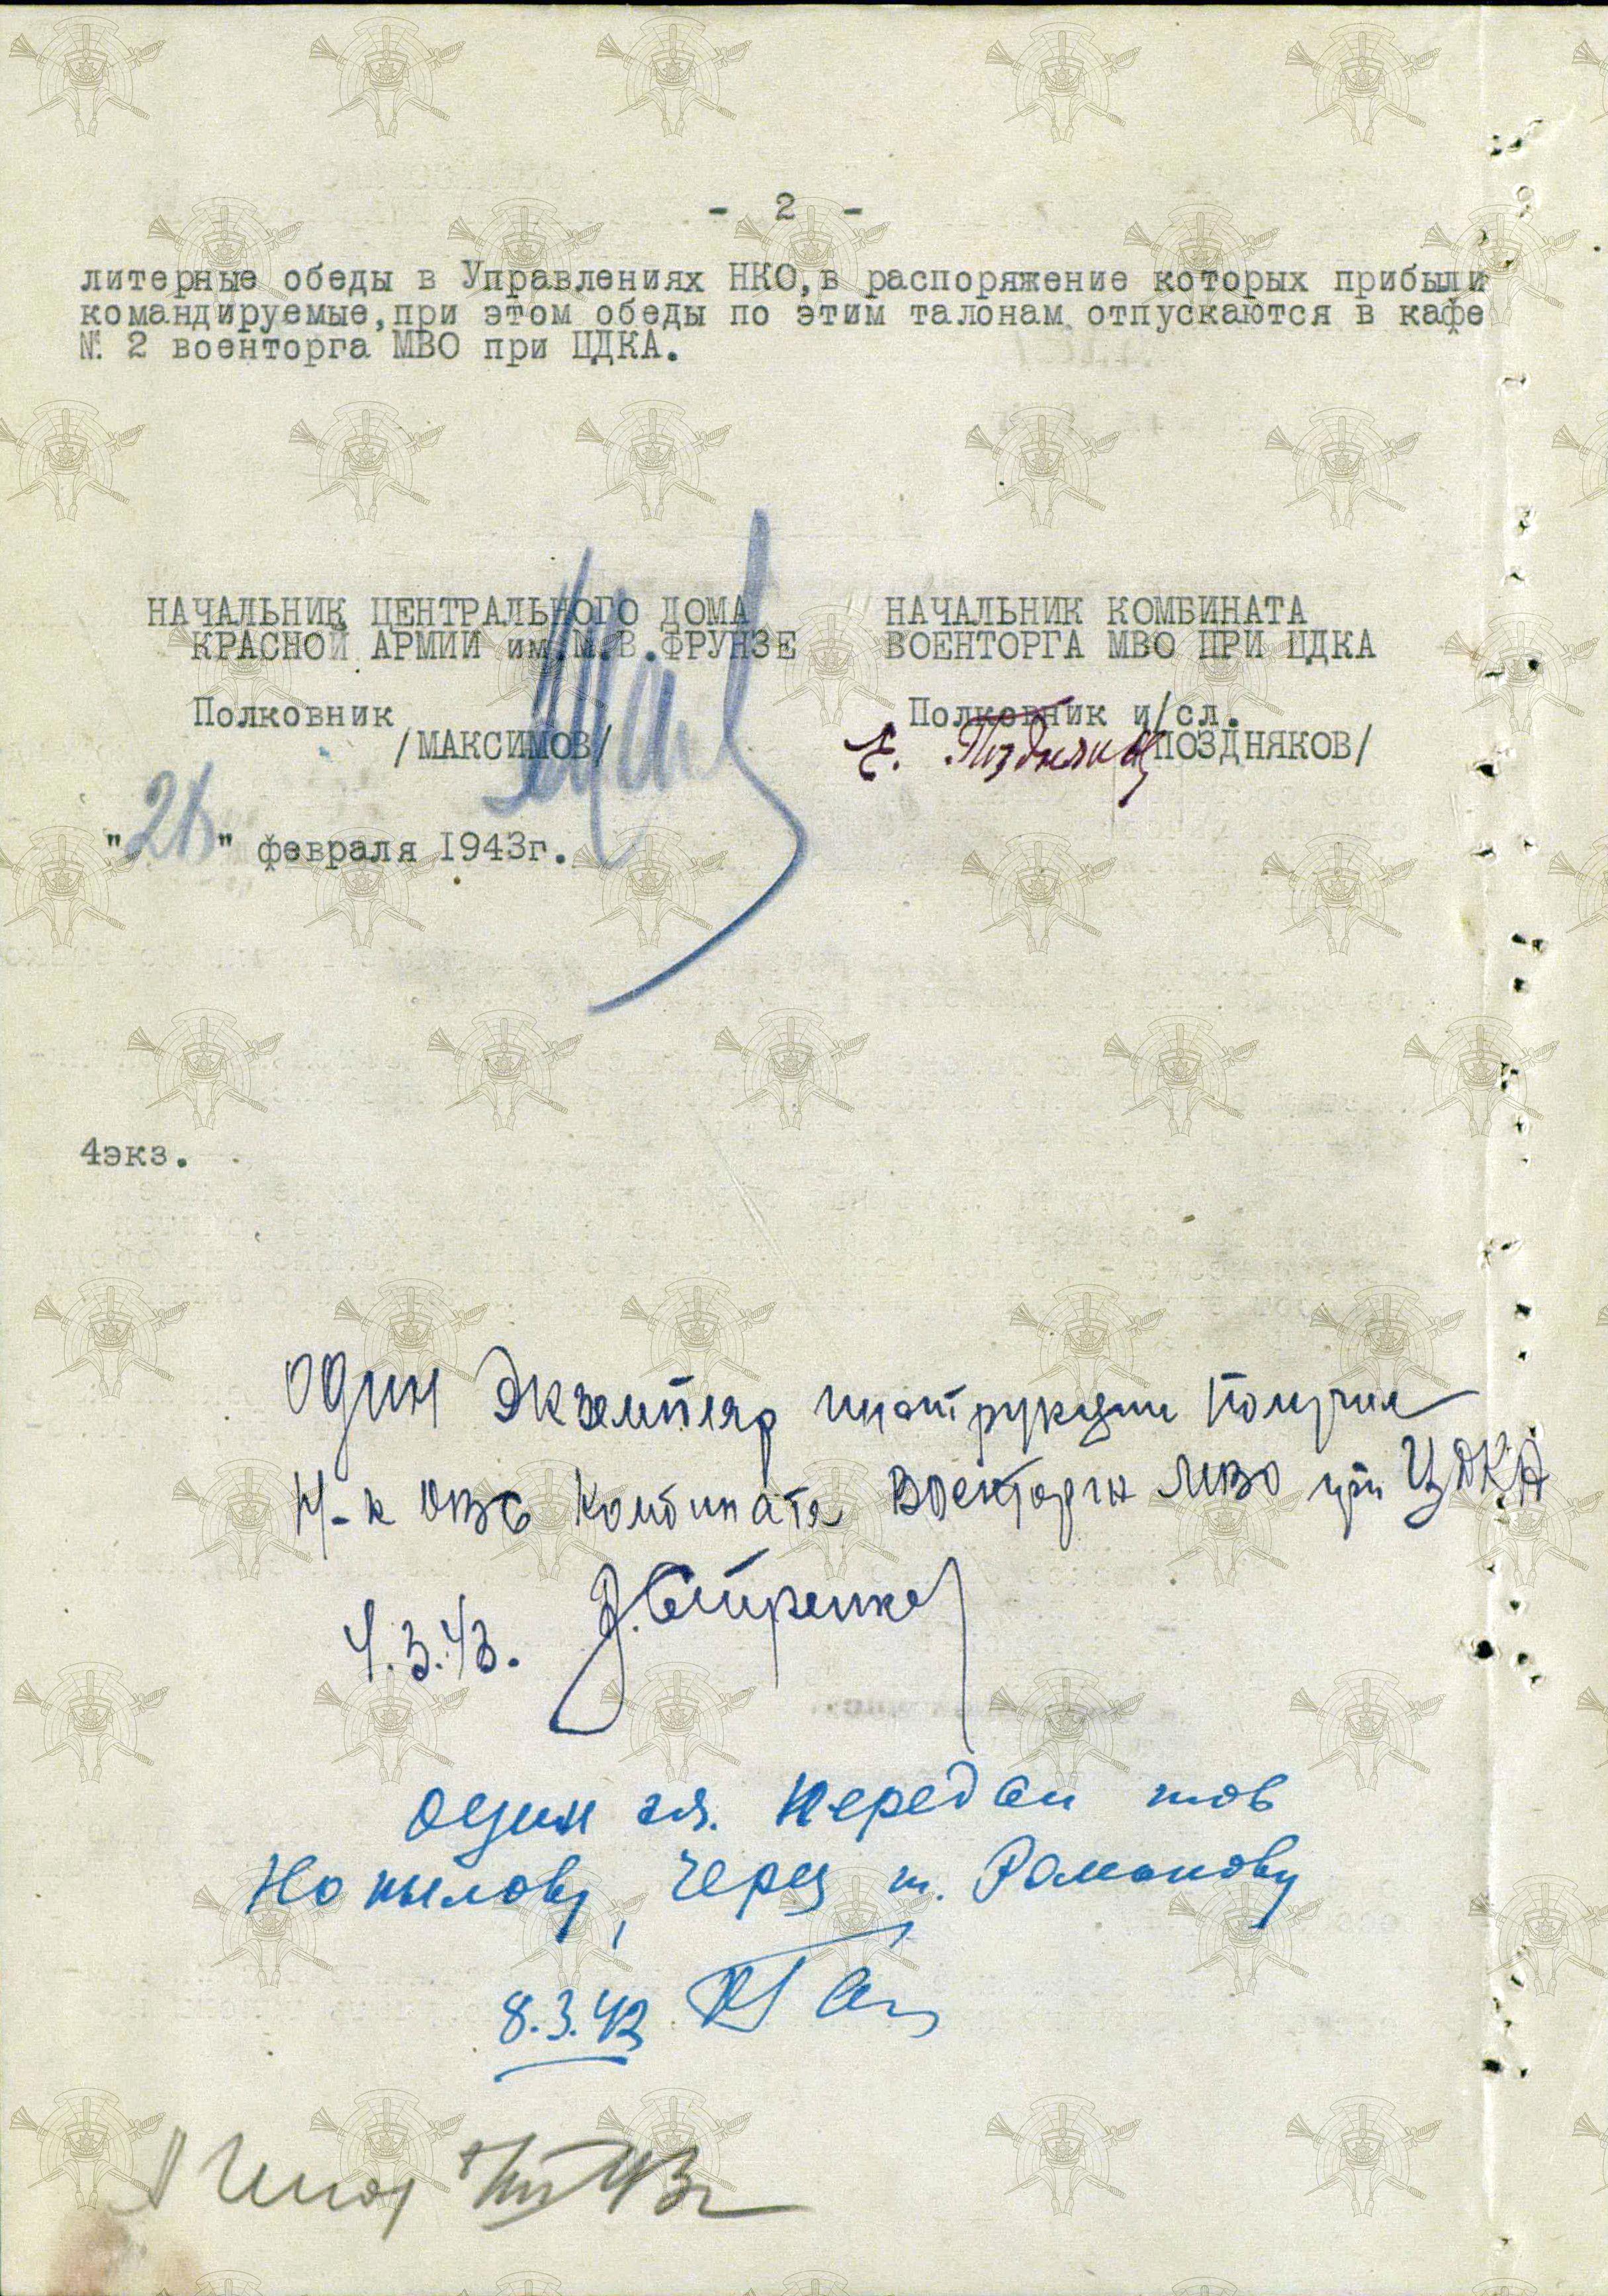 - 2 -
литерные обеды в Управлениях НКО, в распоряжение которых прибыли
командируемые, при этом обеды по этим талонам отпускаются в кафе
№ 2 военторга МВО при ЦДКА.
НАЧАЛЬНИК ЦЕНТРАЛЬНОГО ДОМА
КРАСНОЙ АРМИИ им.М.В.ФРУНЗЕ
Полковник
/МАКСИМОВ/
НАЧАЛЬНИК КОМБИНАТА
ВОЕНТОРГА МВО ПРИ ЦДКА
Полковник и/сл.
Е. Поздняков /ПОЗДНЯКОВ/
" " февраля 1943г.
4экз.
Один экземпляр инструкции получил
Н-к Комбината Военторга МВО при ЦДКА
4.3.43.
Один экз. передан тов
Копылову, через т. Романову
8.3.43